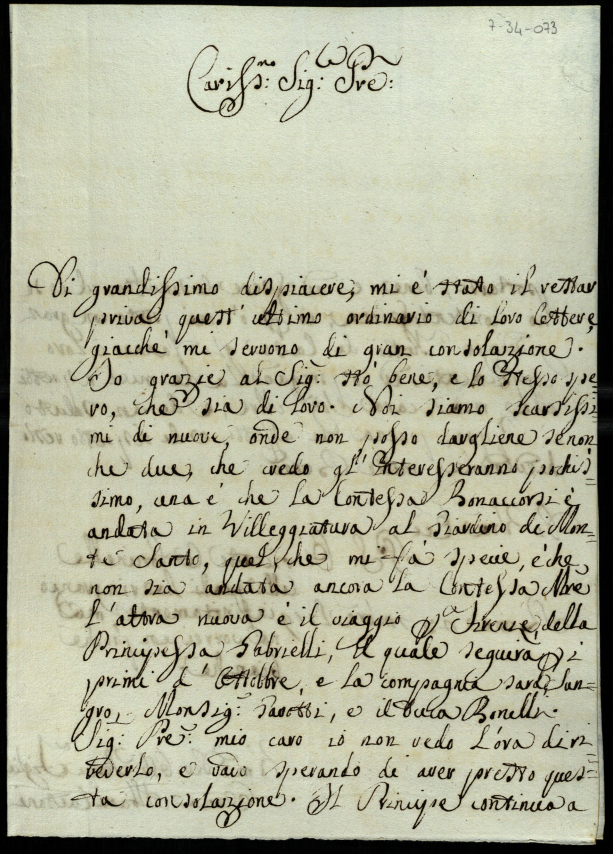 7-34-073
Cariss.mo Sig.r Pre:
Di grandissimo dispiacere, mi é stato il restar
priva quest'ultimo ordinario di loro lettere,
giacché mi servono di gran consolazione.
Io grazie al Sig.r stó bene, e lo stesso spe-
ro, che sia di loro. Noi siamo scartissi-
mi di nuove, onde non posso dargliene se non
che due, che credo gl'interesseranno pochis-
simo, una é che la Contessa Bonaccorsi é
andata in Villeggiatura al Giardino di Mon-
te Santo, quel che mi fá specie, é che
non sia andata ancora la Contessa Mre
L'altra nuova é il viaggio p. Firenze della
Principessa Gabrielli, il quale seguirá p i
primi d'Ottobre, e la compagnia sará, San-
gro, Monsig.r Pasotti, e il Duca Bonelli.
Sig.r Pre mio caro io non vedo l'ora di ri
vederlo, e vado sperando di aver presto ques-
ta consolazione. Il Principe continua a